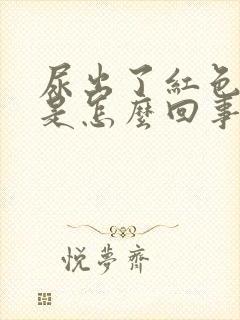 尿出了紅色
是怎麼回事
悅夢齋